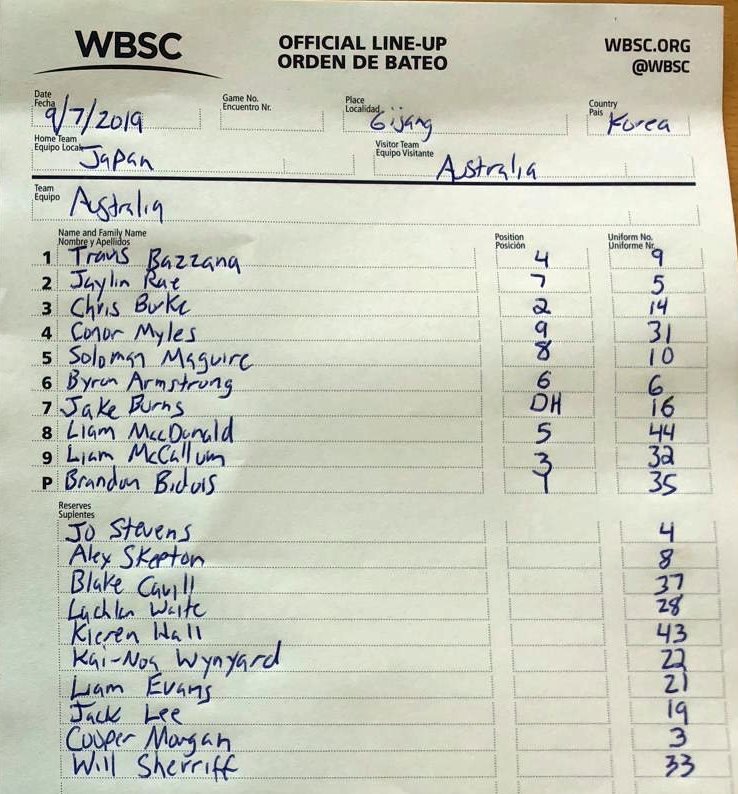 WBSC
OFFICIAL LINE-UP
ORDEN DE BATEO
WBSC.ORG
@WBSC
Date
Fecha
9/7/2019
Game No.
Encuentro Nr.
Place
Localidad
Gijang
Country
País
Korea
Home Team
Equipo Local
Japan
Visitor Team
Equipo Visitante
Australia
Team
Equipo
Australia
Name and Family Name
Nombre y Apellidos
Position
Posición
Uniform No.
Uniforme Nr.
1 Travis Bazzana 4 9
2 Jaylin Rae 7 5
3 Chris Burke 2 14
4 Conor Myles 9 31
5 Soloman Maguire 8 10
6 Byron Armstrong 6 6
7 Jake Burns DH 16
8 Liam MacDonald 5 44
9 Liam McCallum 3 32
P Brandon Bidois 1 35
Reserves
Suplentes
Jo Stevens 4
Alex Skepton 8
Blake Cavill 37
Lachlan Waite 28
Kieren Hall 43
Kai-Noa Wynyard 22
Liam Evans 21
Jack Lee 19
Cooper Morgan 3
Will Sherriff 33